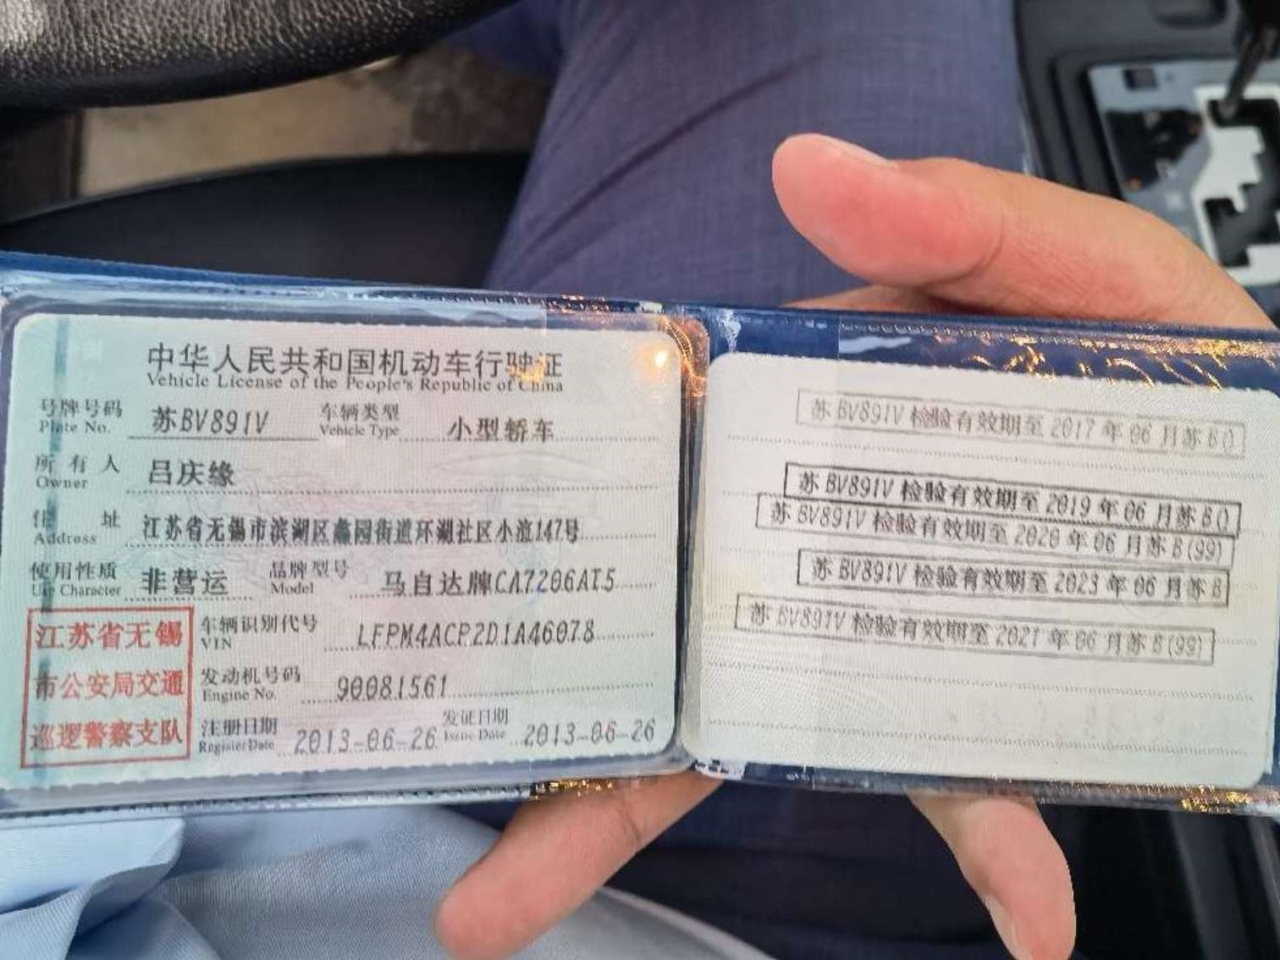 中华人民共和国机动车行驶证
Vehicle License of the People's Republic of China
号牌号码 苏BV891V 车辆类型 小型轿车
Plate No. Vehicle Type
所有人 吕庆缘
Owner
住址 江苏省无锡市滨湖区蠡园街道环湖社区小渲147号
Address
使用性质 非营运 品牌型号 马自达牌CA7206AT5
Use Character Model
江苏省无锡
市公安局交通
巡逻警察支队
车辆识别代号 LFPM4ACP2D1A46078
VIN
发动机号码 90081561
Engine No.
注册日期 2013-06-26 发证日期 2013-06-26
Register Date Issue Date
苏BV891V 检验有效期至 2017 年 06 月苏B()
苏BV891V 检验有效期至 2019 年 06 月苏B()
苏BV891V 检验有效期至 2020 年 06 月苏B(99)
苏BV891V 检验有效期至 2023 年 06 月苏B
苏BV891V 检验有效期至 2021 年 06 月苏B(99)